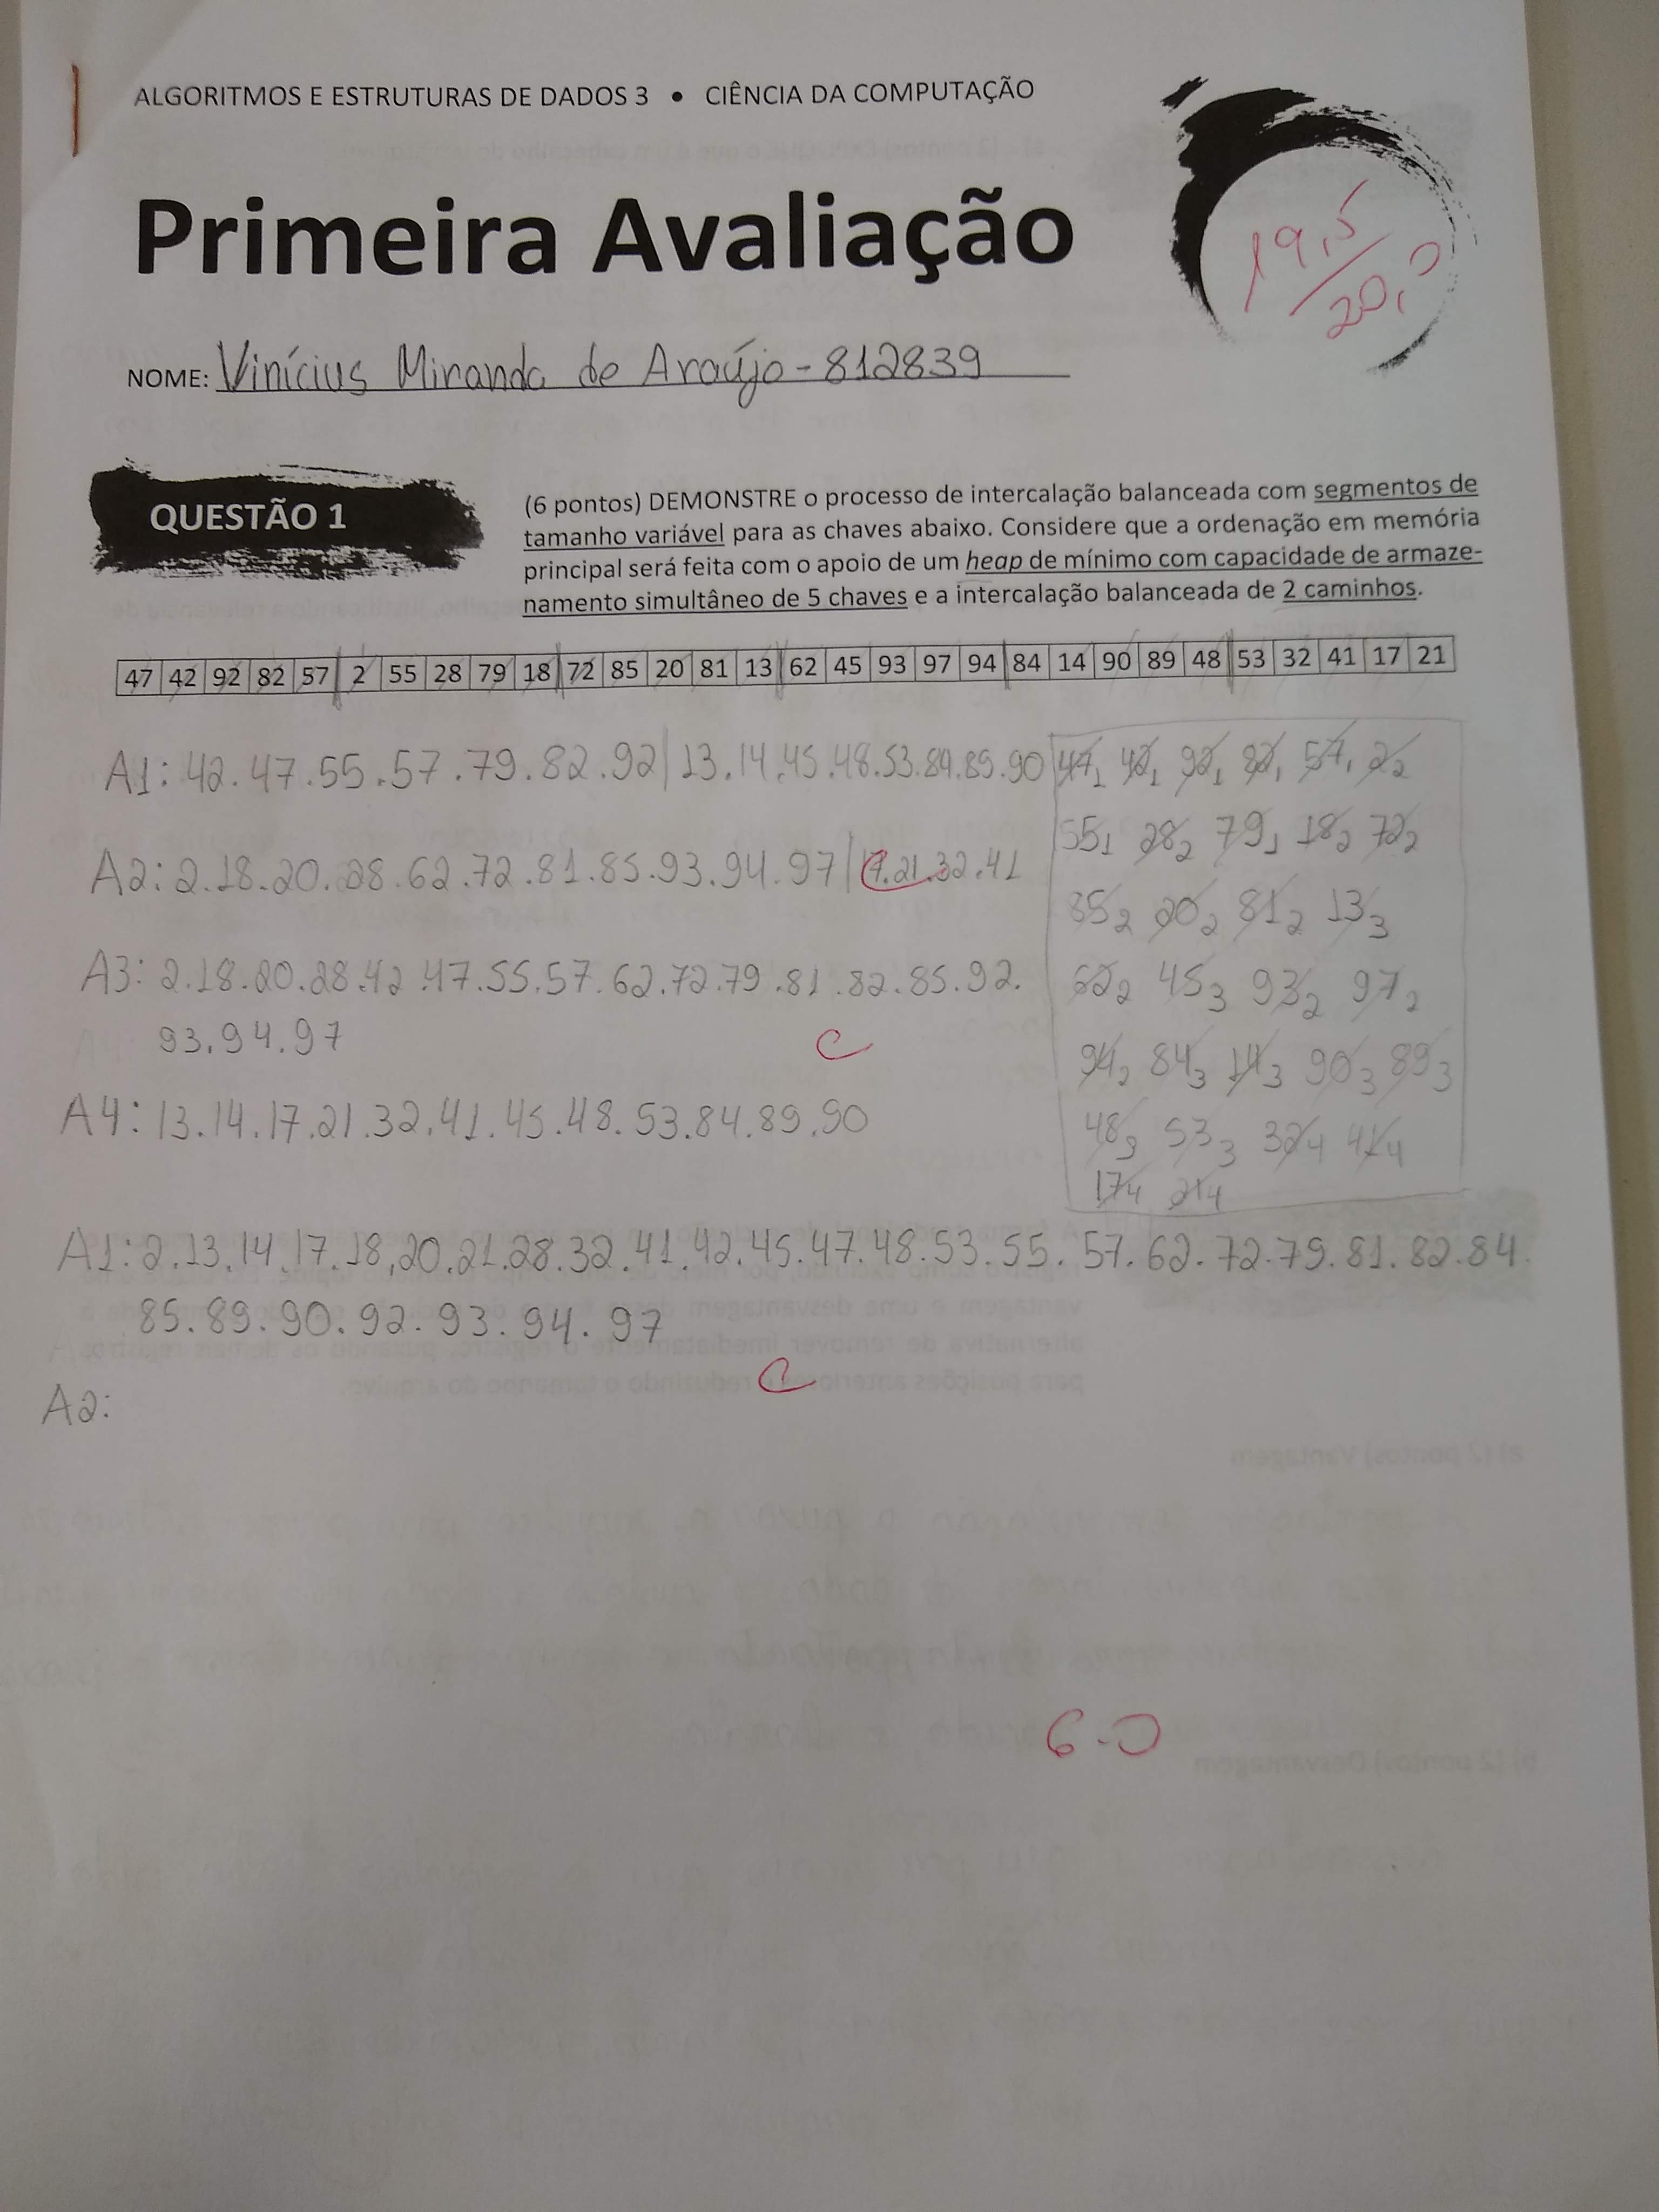 ALGORITMOS E ESTRUTURAS DE DADOS 3 • CIÊNCIA DA COMPUTAÇÃO
Primeira Avaliação
19,5/20,0
NOME: Vinícius Miranda de Araújo - 812839
QUESTÃO 1
(6 pontos) DEMONSTRE o processo de intercalação balanceada com segmentos de
tamanho variável para as chaves abaixo. Considere que a ordenação em memória
principal será feita com o apoio de um heap de mínimo com capacidade de armaze-
namento simultâneo de 5 chaves e a intercalação balanceada de 2 caminhos.
47 42 92 82 57 2 55 28 79 18 72 85 20 81 13 62 45 93 97 94 84 14 90 89 48 53 32 41 17 21
A1: 42.47.55.57.79.82.92| 13.14.45.48.53.84.89.90
A2: 2.18.20.28.62.72.81.85.93.94.97| 17.21.32.41 C
A3: 2.18.20.28.42.47.55.57.62.72.79.81.82.85.92.
93.94.97 C
A4: 13.14.17.21.32.41.45.48.53.84.89.90
47₁ 42₁ 92₁ 82₁ 57₁ 2₂
55₁ 28₂ 79₁ 18₂ 72₂
85₂ 20₂ 81₂ 13₃
62₂ 45₃ 93₂ 97₂
94₂ 84₃ 14₃ 90₃ 89₃
48₃ 53₃ 32₄ 41₄
17₄ 21₄
A1: 2.13.14.17.18,20.21.28.32.41.42.45.47.48.53.55.57.62.72.79.81.82.84.
85.89.90.92.93.94.97
C
A2:
6.0